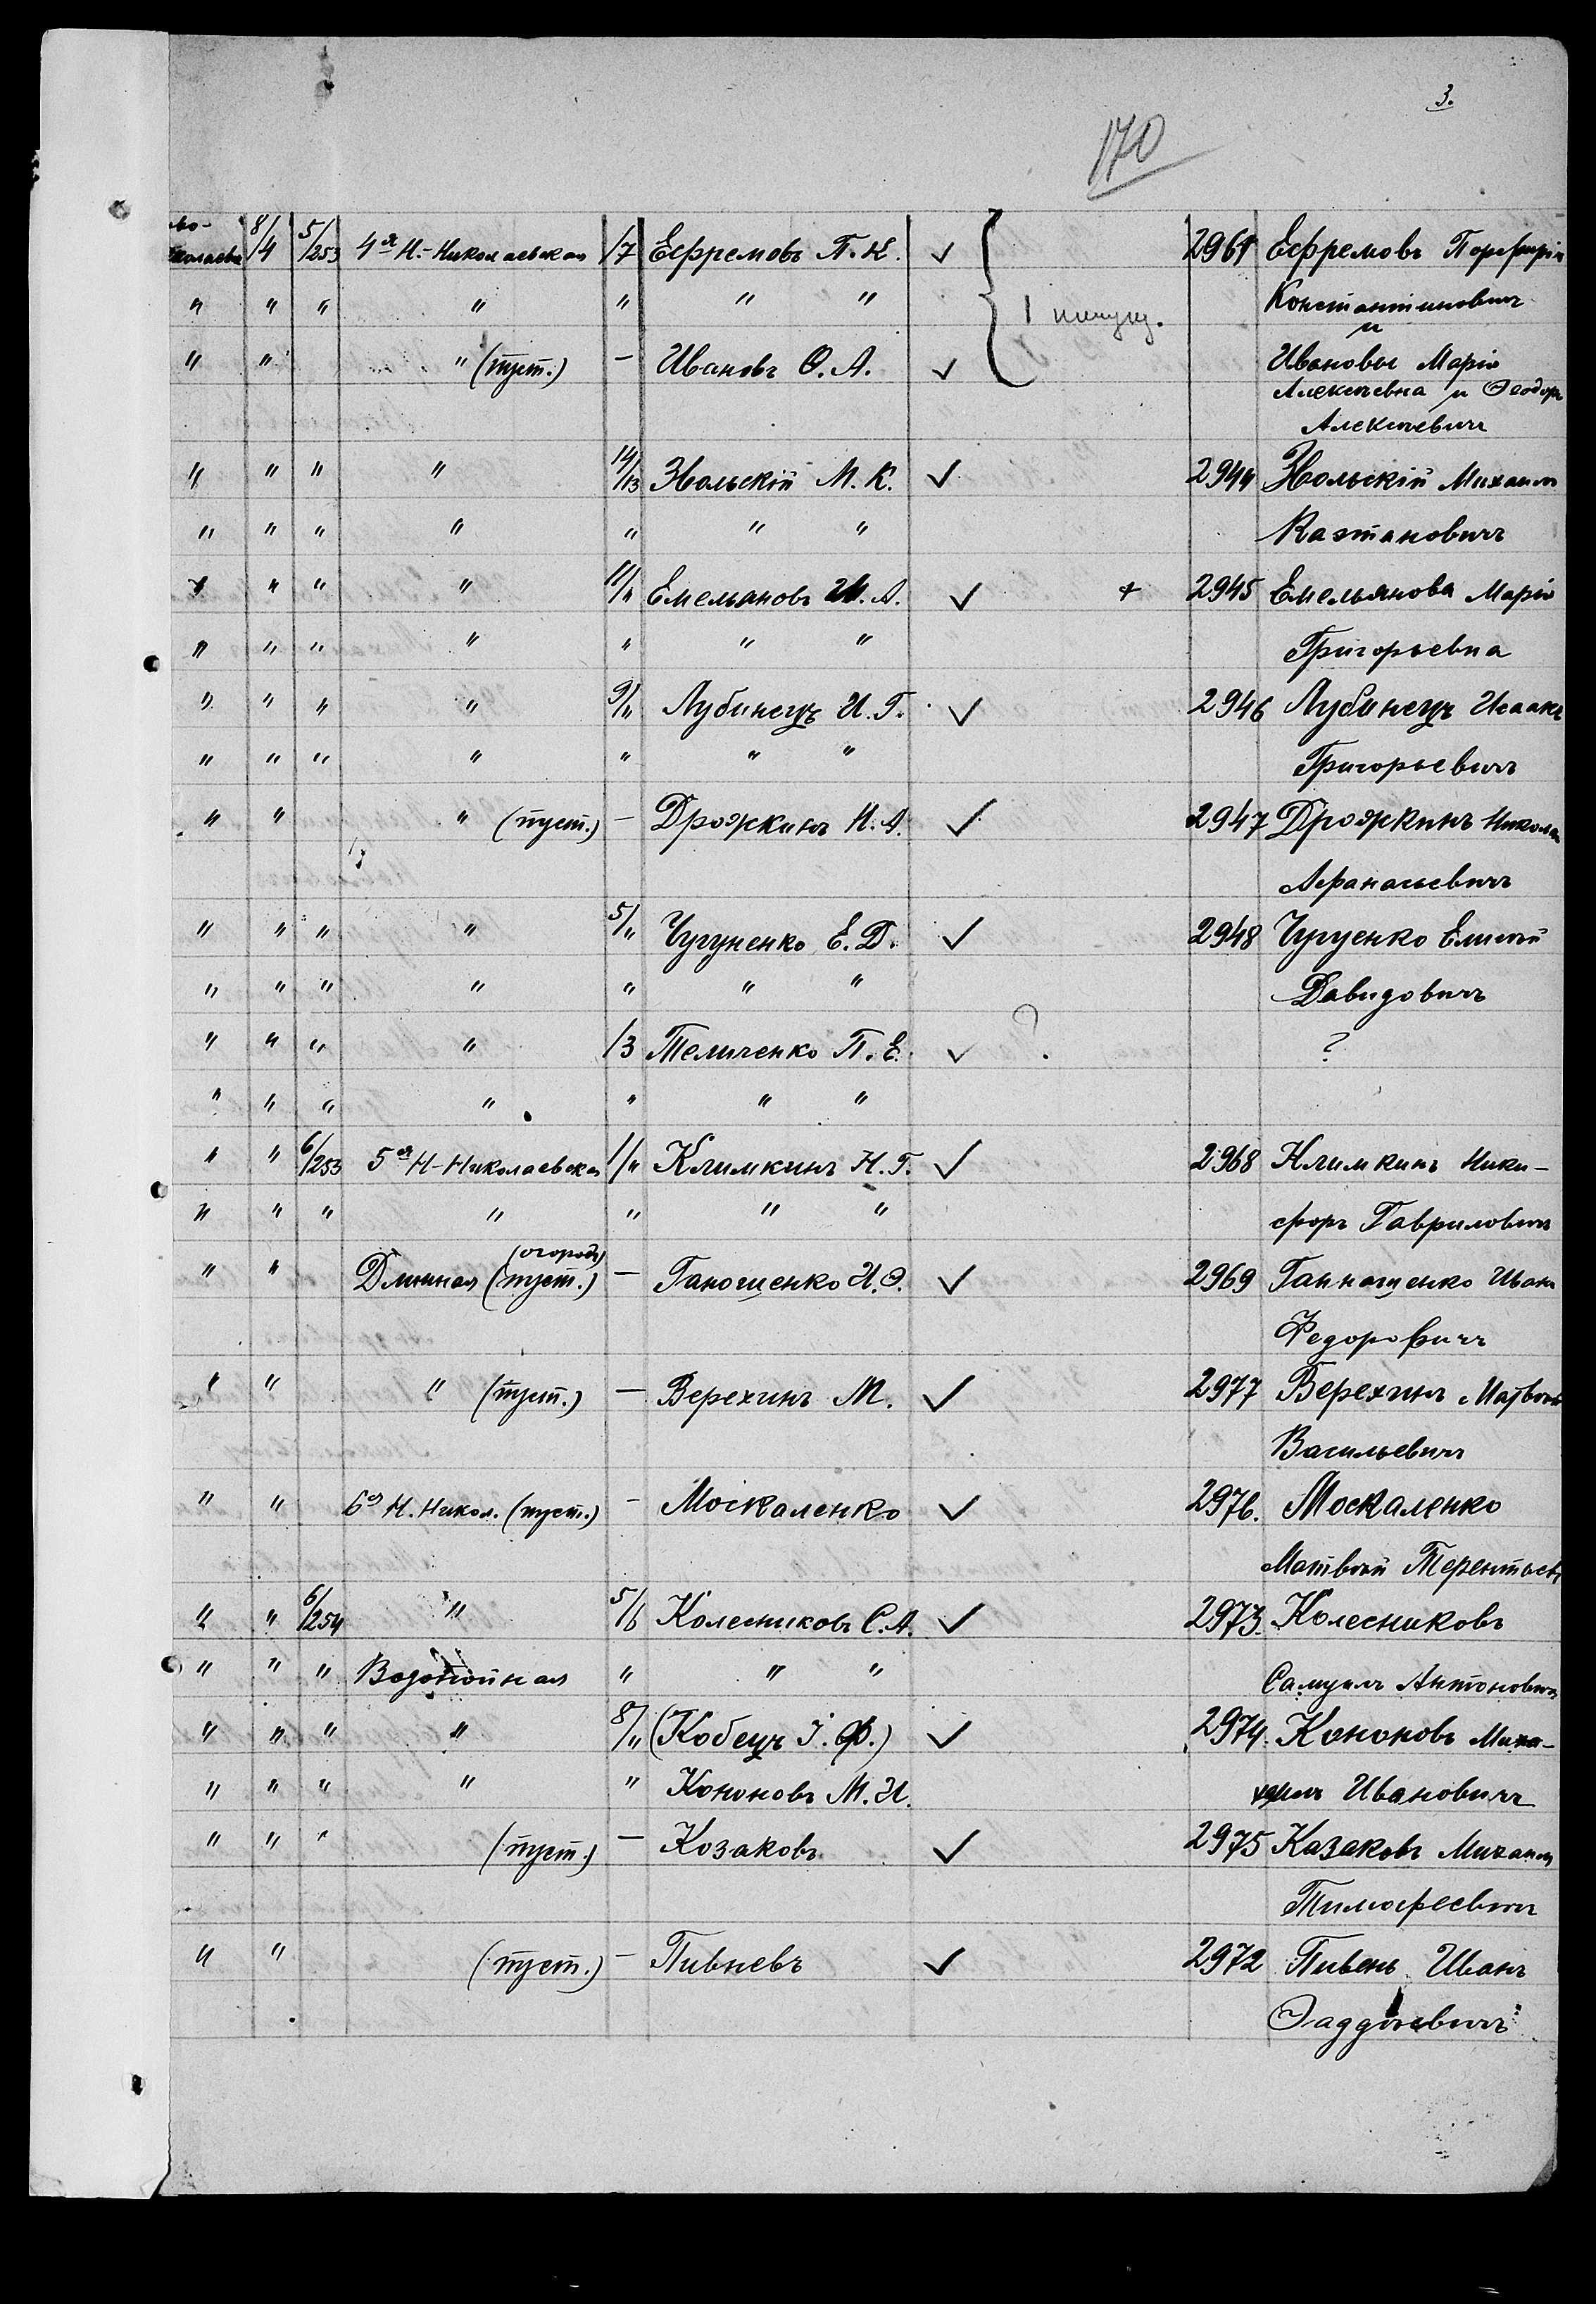 3.
170
8/4 5/253 4я Н.-Николаевская /7 Ефремовъ П. К. ✓ 2961 Ефремовъ Порфирій
" " " " " " " 1 Константиновичъ
и
" " " (пуст.) — Ивановъ Ѳ. А. ✓ Ивановы Марія
Алексѣевна и Ѳеодоръ
Алексѣевичъ
" " " " 14/13 Звольскій М. К. ✓ 2944 Звольскій Михаилъ
" " " " " " " Каэтановичъ
" " " " 11/" Емельяновъ И. А. ✓ + 2945 Емельянова Марія
" " " " " " " Григорьевна
" " " " 9/" Лубинецъ И. Г. ✓ 2946 Лубинецъ Исаакъ
" " " " " " " Григорьевичъ
" " " (пуст.) — Дрожкинъ Н. А. ✓ 2947 Дрожкинъ Николай
Афанасьевичъ
" " " " 5/" Чугуненко Е. Д. ✓ 2948 Чугуенко Елисѣй
" " " " " " " Давидовичъ
" " " " /3 Теличенко П. Е. ✓ ? ?
" " " " " " "
" " 6/253 5я Н-Николаевская 1/" Климкинъ Н. Г. ✓ 2968 Климкинъ Ники-
" " " " " " " форъ Гавриловичъ
(огородъ)
" " Длинная (пуст.) — Ганощенко И. Ѳ. ✓ 2969 Ганнощенко Иванъ
Федоровичъ
" " " (пуст.) — Верехинъ М. ✓ 2977 Верехинъ Матвѣй
Васильевичъ
" " 6я Н. Никол. (пуст.) - Москаленко ✓ 2976. Москаленко
Матвѣй Терентьев
" " 6/254 " 5/6 Колесниковъ С. А. ✓ 2973. Колесниковъ
" " " Водопойная " " " Самуилъ Антоновичъ
" " " " 8/" (Кобецъ І. Ф.) ✓ 2974. Кононовъ Миха-
" " " " " Кононовъ М. И. Ивановичъ
" " " (пуст.) — Козаковъ ✓ 2975 Казаковъ Михаилъ
Тимофеевичъ
" " (пуст.) - Пивневъ ✓ 2972 Пивень Иванъ
Ѳаддѣевичъ